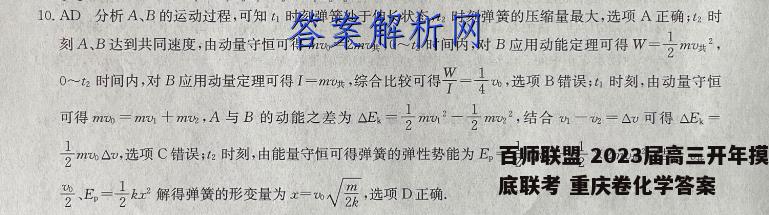 10. AD 分析 A、B 的运动过程,可知 t₁ 时刻弹簧处于伸长状态,t₂ 时刻弹簧的压缩量最大,选项 A 正确;t₂ 时
答案解析网
刻 A、B 达到共同速度,由动量守恒可得 mv₀=2mv共,0～t₂ 时间内,对 B 应用动能定理可得 W=1/2 mv共²,
0～t₂ 时间内,对 B 应用动量定理可得 I=mv共,综合比较可得 W/I=1/4 v₀,选项 B 错误;t₁ 时刻,由动量守恒
可得 mv₀=mv₁+mv₂,A 与 B 的动能之差为 ΔEₖ=1/2 mv₁²-1/2 mv₂²,结合 v₁-v₂=Δv 可得 ΔEₖ=
1/2 mv₀Δv,选项 C 错误;t₂ 时刻,由能量守恒可得弹簧的弹性势能为 Eₚ
百师联盟 2023届高三开年摸
底联考 重庆卷化学答案
v₀/2、Eₚ=1/2 kx² 解得弹簧的形变量为 x=v₀√(m/2k),选项 D 正确.